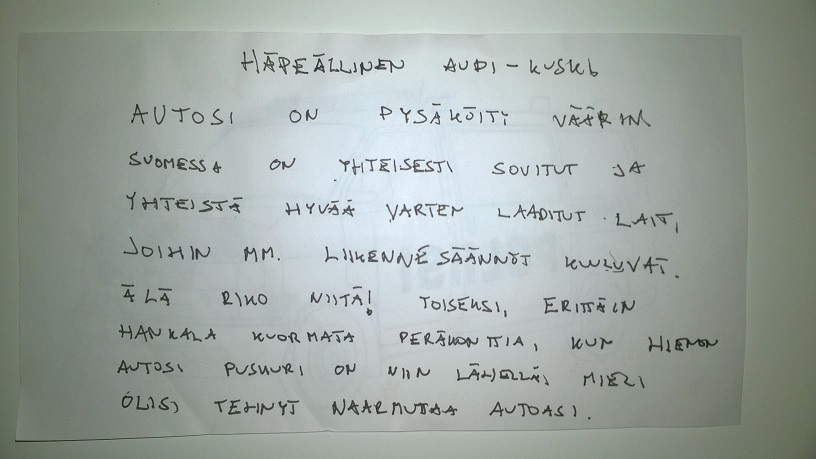 HÄPEÄLLINEN AUDI-KUSKI
AUTOSI ON PYSÄKÖITY VÄÄRIN
SUOMESSA ON YHTEISESTI SOVITUT JA
YHTEISTÄ HYVÄÄ VARTEN LAADITUT LAIT,
JOIHIN MM. LIIKENNE SÄÄNNÖT KUULUVAT.
ÄLÄ RIKO NIITÄ! TOISEKSI, ERITTÄIN
HANKALA KUORMATA PERÄKONTTIA, KUN HIENON
AUTOSI PUSKURI ON NIIN LÄHELLÄ, MIELI
OLISI TEHNYT NAARMUTAA AUTOASI.